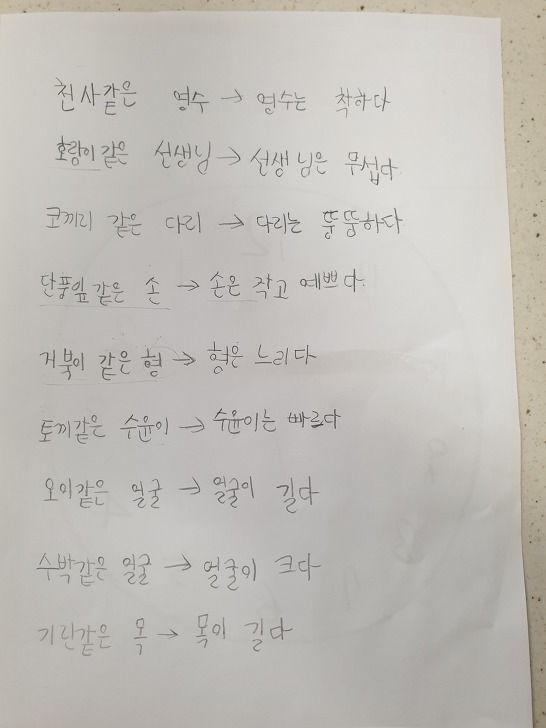 천사같은 영수 → 영수는 착하다
호랑이 같은 선생님 → 선생님은 무섭다.
코끼리 같은 다리 → 다리는 뚱뚱하다
단풍잎 같은 손 → 손은 작고 예쁘다.
거북이 같은 형 → 형은 느리다
토끼같은 수윤이 → 수윤이는 빠르다
오이같은 얼굴 → 얼굴이 길다
수박같은 얼굴 → 얼굴이 크다
기린같은 목 → 목이 길다